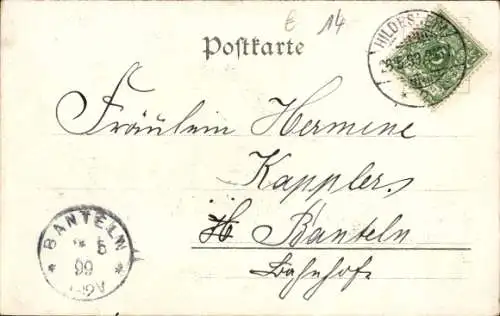 € 14
Postkarte
HILDESHEIM
Fräulein Hermine
Kapplers
H Banteln
Bahnhof
BANTELN
5
99